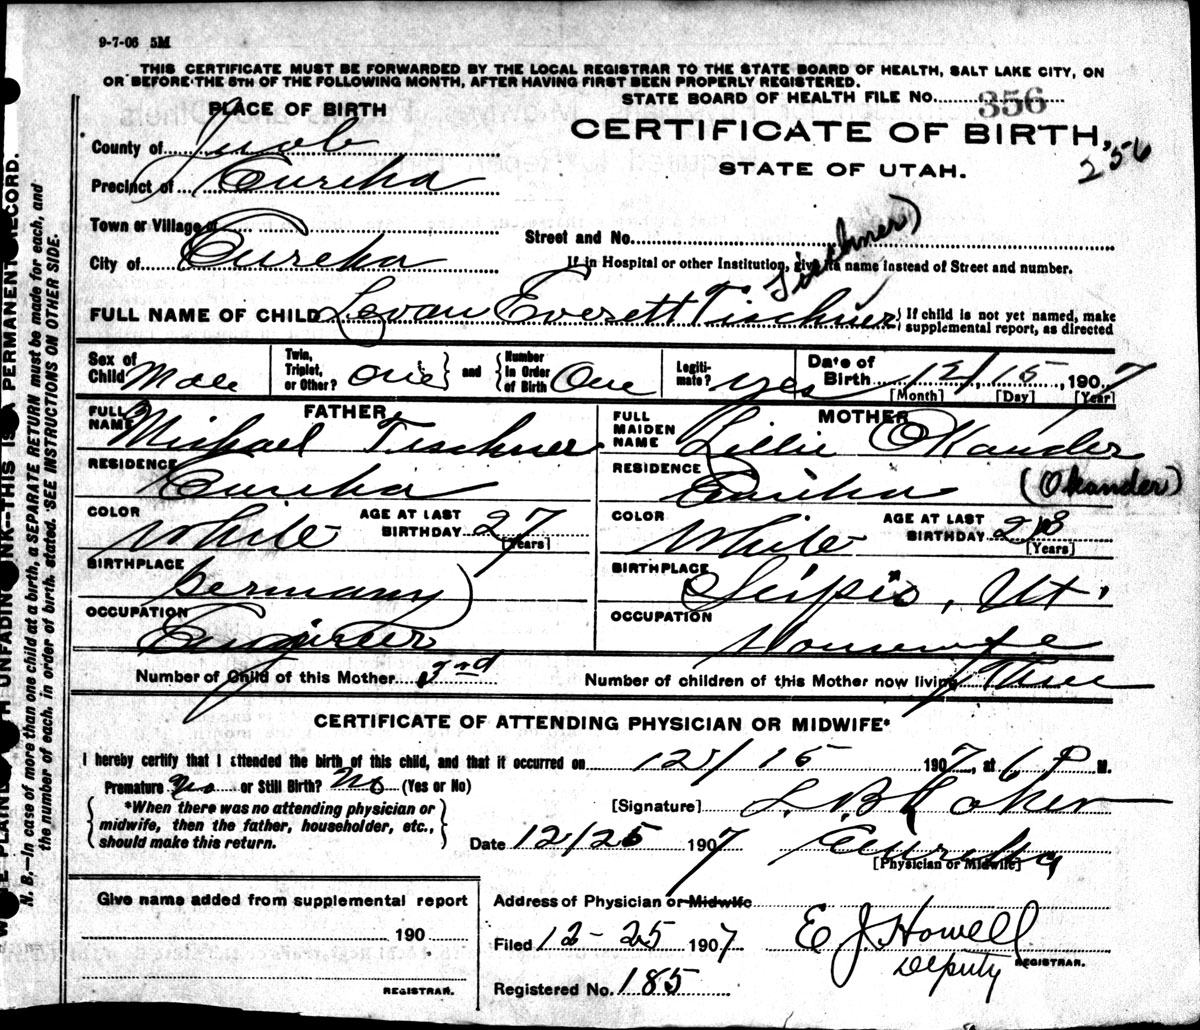 9-7-06 5M
THIS CERTIFICATE MUST BE FORWARDED BY THE LOCAL REGISTRAR TO THE STATE BOARD OF HEALTH, SALT LAKE CITY, ON
OR BEFORE THE 5TH OF THE FOLLOWING MONTH, AFTER HAVING FIRST BEEN PROPERLY REGISTERED.
PLACE OF BIRTH
STATE BOARD OF HEALTH FILE NO. 356
CERTIFICATE OF BIRTH,
256
STATE OF UTAH.
County of Juab
Precinct of Eureka
Town or Village of
City of Eureka
Street and No.
If in Hospital or other Institution, give its name instead of Street and number.
Tischner)
FULL NAME OF CHILD Levan Everett Tischner } If child is not yet named, make
supplemental report, as directed
Sex of
Child Male
Twin,
Triplet,
or Other? One } and { Number
In Order
of Birth One
Legiti-
mate? yes
Date of
Birth 12/ 15, 1907
[Month] [Day] [Year]
FATHER
FULL
NAME Michael Tischner
RESIDENCE
Eureka
COLOR
White
AGE AT LAST
BIRTHDAY 27
[Years]
BIRTHPLACE
Germany
OCCUPATION
Engineer
MOTHER
FULL
MAIDEN
NAME Lillie OKander
RESIDENCE
Eureka (Okander)
COLOR
White
AGE AT LAST
BIRTHDAY
[Years]
BIRTHPLACE
Scipio, Ut.
OCCUPATION
Housewife
Number of Child of this Mother 3rd
Number of children of this Mother now living Three
CERTIFICATE OF ATTENDING PHYSICIAN OR MIDWIFE*
I hereby certify that I attended the birth of this child, and that it occurred on 12/ 15 1907, at 6 P M.
Premature or Still Birth? No (Yes or No)
{ *When there was no attending physician or
midwife, then the father, householder, etc.,
should make this return. }
[Signature]
Date 12/25 1907
Eureka
[Physician or Midwife]
Give name added from supplemental report
190
REGISTRAR.
Address of Physician or Midwife
Filed 12-25 1907
E J Howell
Deputy REGISTRAR.
Registered No. 185
N. B.—In case of more than one child at a birth, a SEPARATE RETURN must be made for each, and
the number of each, in order of birth stated. SEE INSTRUCTIONS ON OTHER SIDE.
UNFADING INK--THIS IS A PERMANENT RECORD.